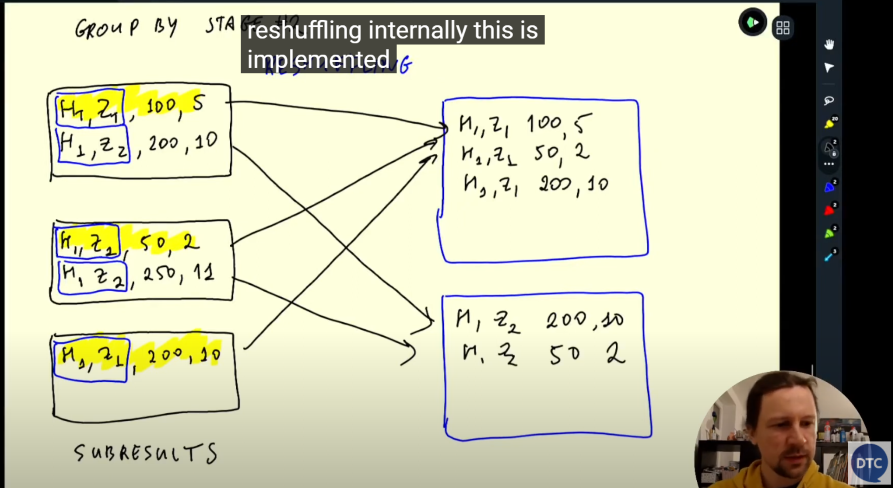 GROUP BY STAGE #2
reshuffling internally this is
implemented
H1, Z1, 100, 5
H1, Z2, 200, 10
H1, Z1, 50, 2
H1 Z2, 250, 11
H1, Z1, 200, 10
SUBRESULTS
H1, Z1 100, 5
H1, Z1 50, 2
H1, Z1 200, 10
H1 Z2 200, 10
H1 Z2 50 2
DTC